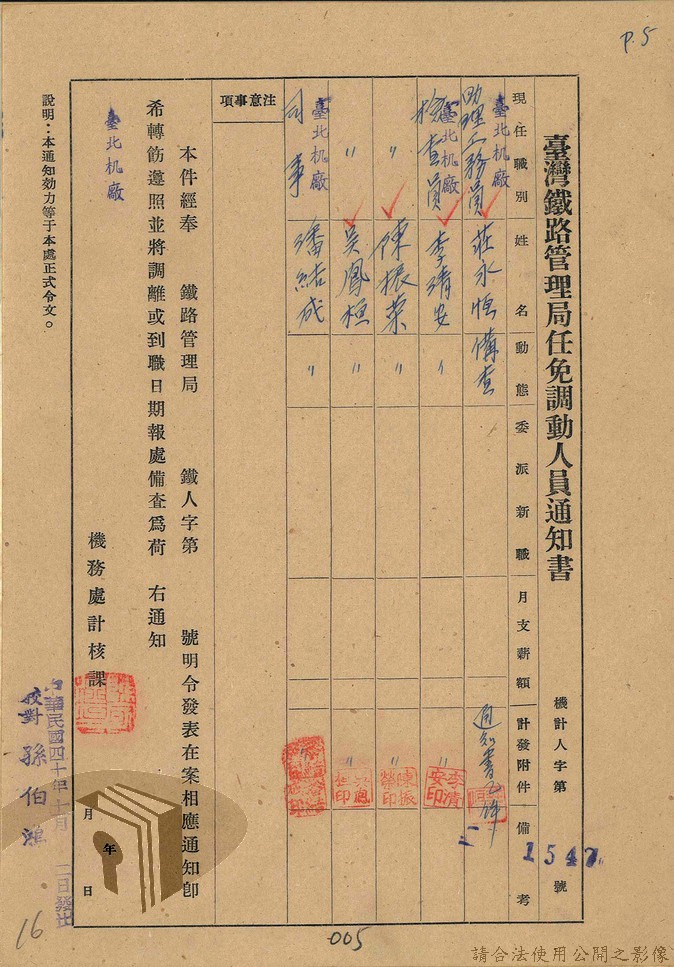 P.5
臺灣鐵路管理局任免調動人員通知書
機計人字第1547號
現任職別 姓名 動態 委派新職 月支薪額 計發附件 備考
臺北机廠 助理工務員 莊永恒 備查 通知書乙件
臺北机廠 檢查員 李清安 〃 〃
〃 陳振榮 〃 〃
〃 吳鳳桓 〃 〃
臺北机廠 司事 潘結成 〃
李清安印
陳振榮印
注意事項
本件經奉 鐵路管理局 鐵人字第 號明令發表在案相應通知卽
希轉飭遵照並將調離或到職日期報處備査爲荷 右通知
臺北机廠
機務處計核課
年 月 日
說明:本通知効力等于本處正式令文。
中華民國四十年十月二日發出
校對 孫伯鴻
16
005
請合法使用公開之影像